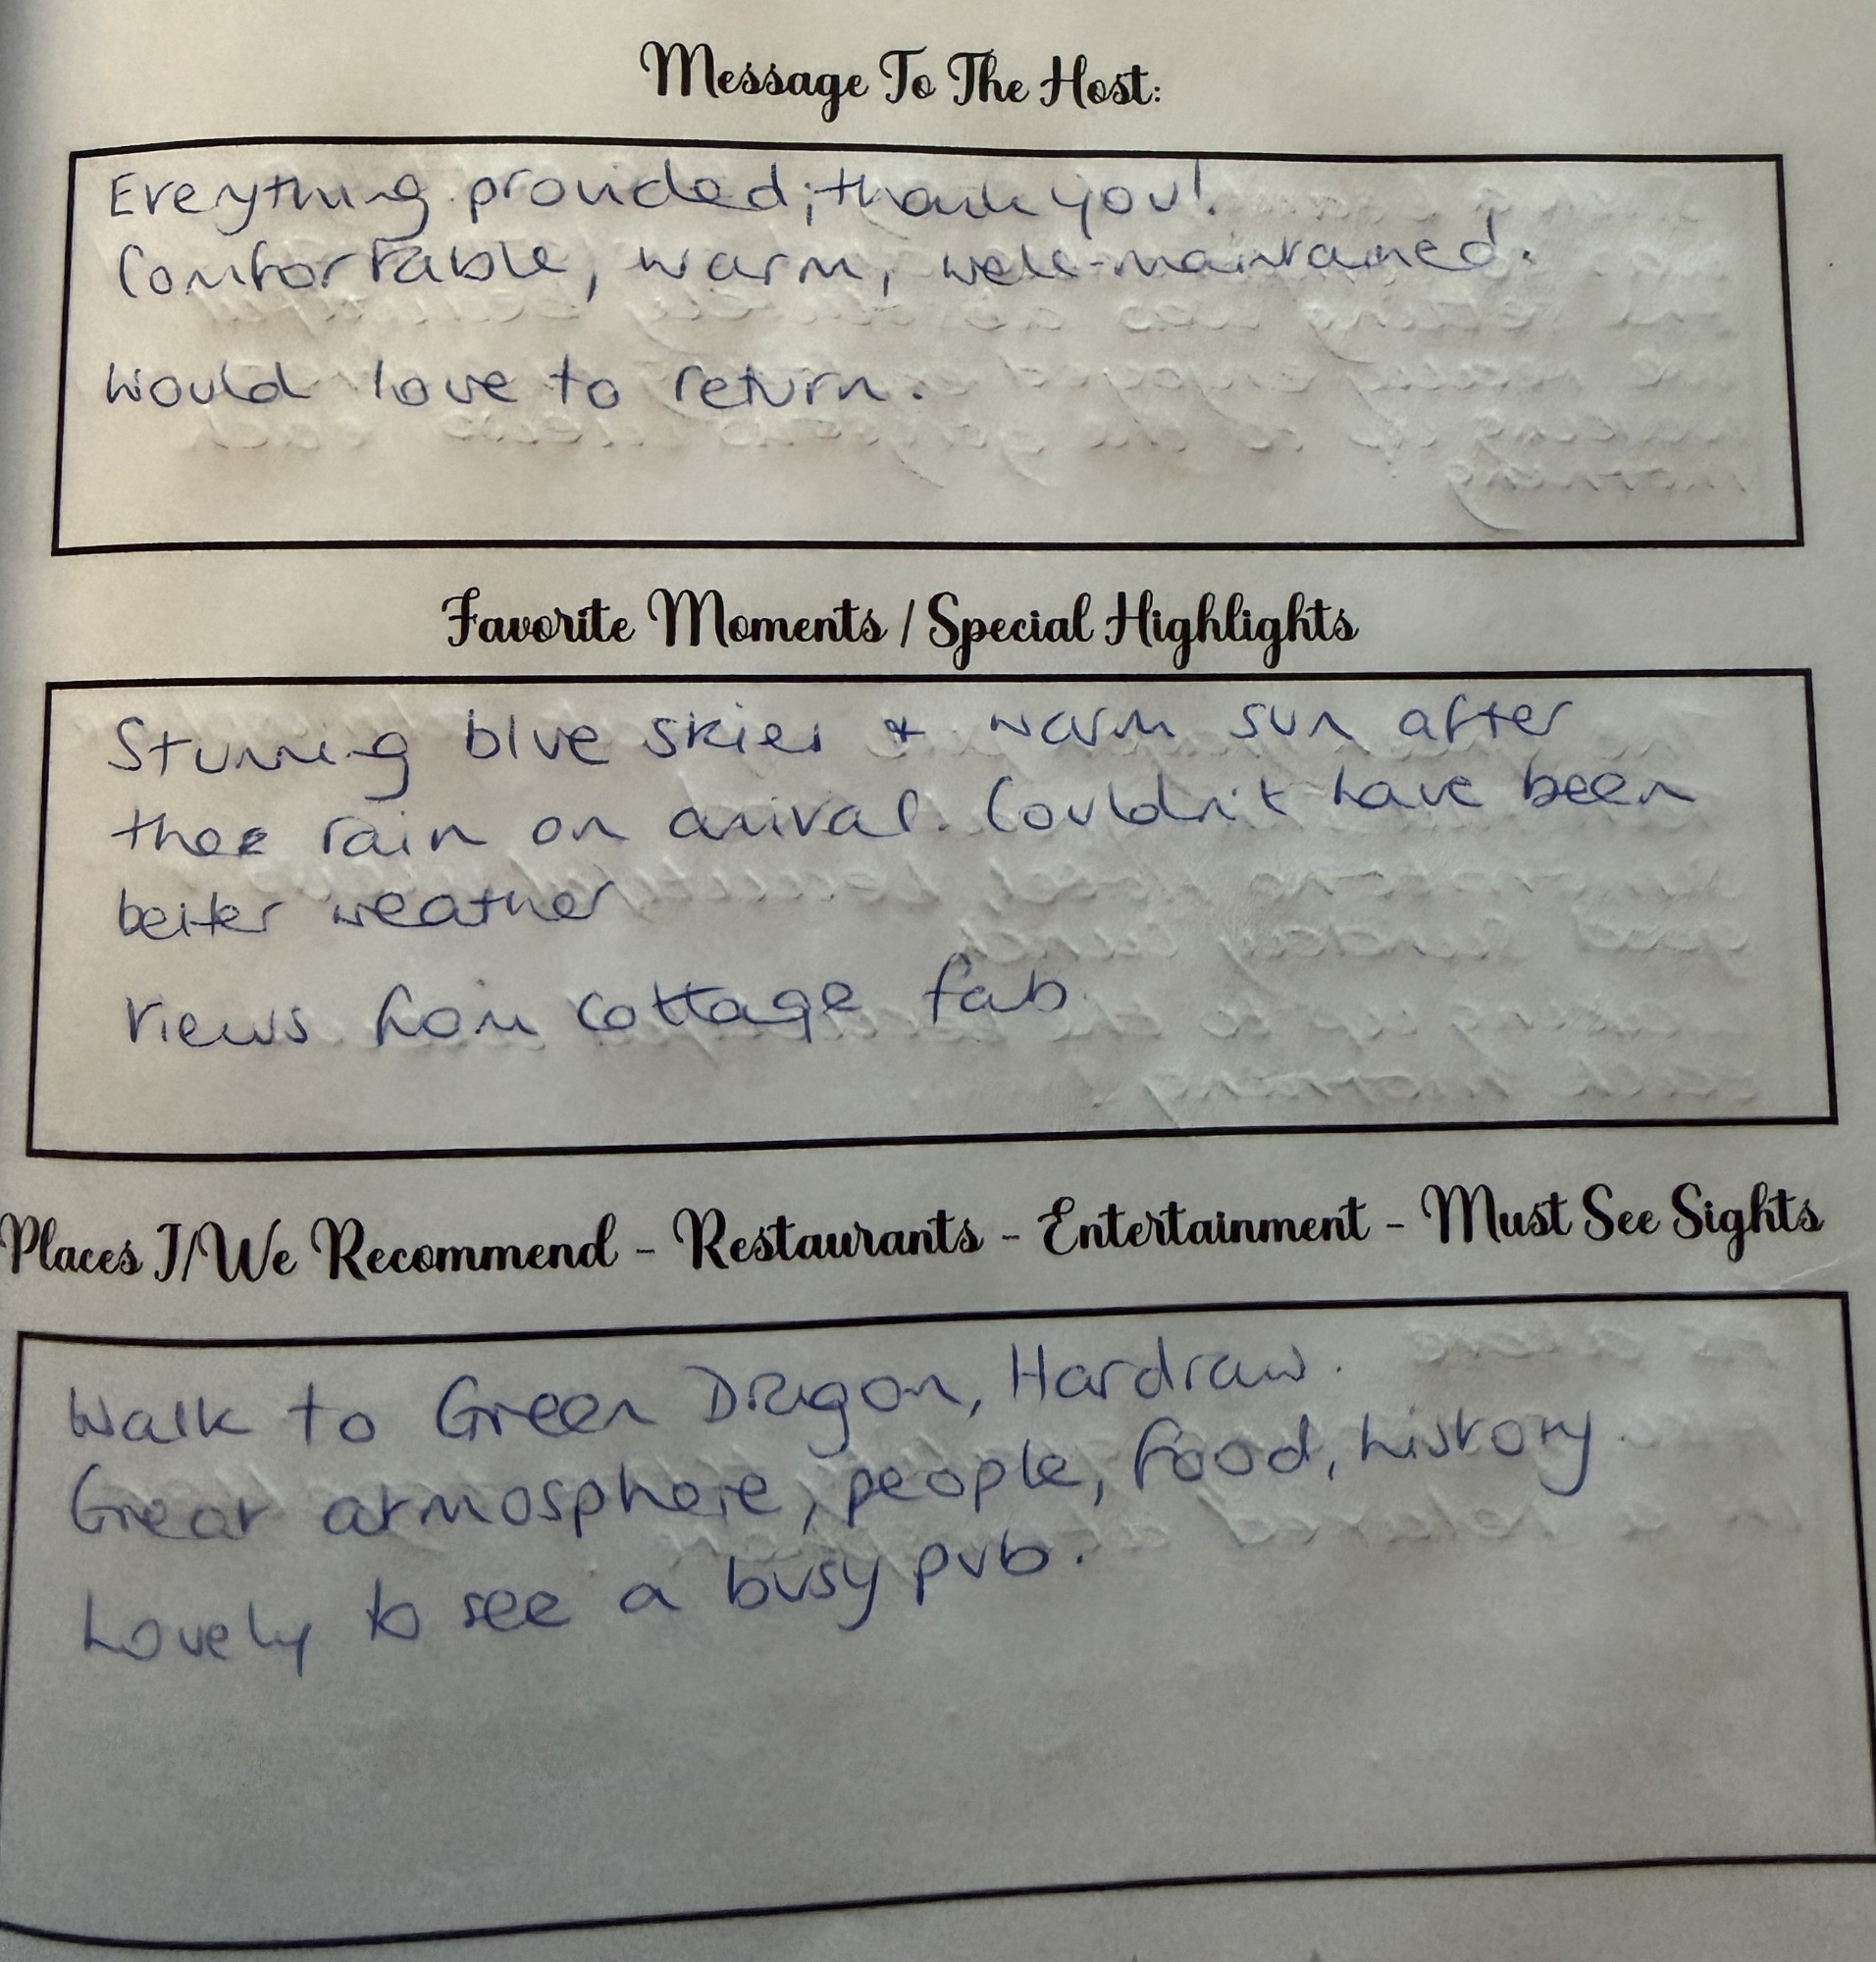 Message To The Host:
Everything provided; thank you!
Comfortable, warm, well-maintained.
Would love to return.
Favorite Moments / Special Highlights
Stunning blue skies & warm sun after
the rain on arrival. Couldn't have been
better weather
Views from cottage fab.
Places I/We Recommend - Restaurants - Entertainment - Must See Sights
Walk to Green Dragon, Hardraw.
Great atmosphere, people, food, history.
Lovely to see a busy pub.